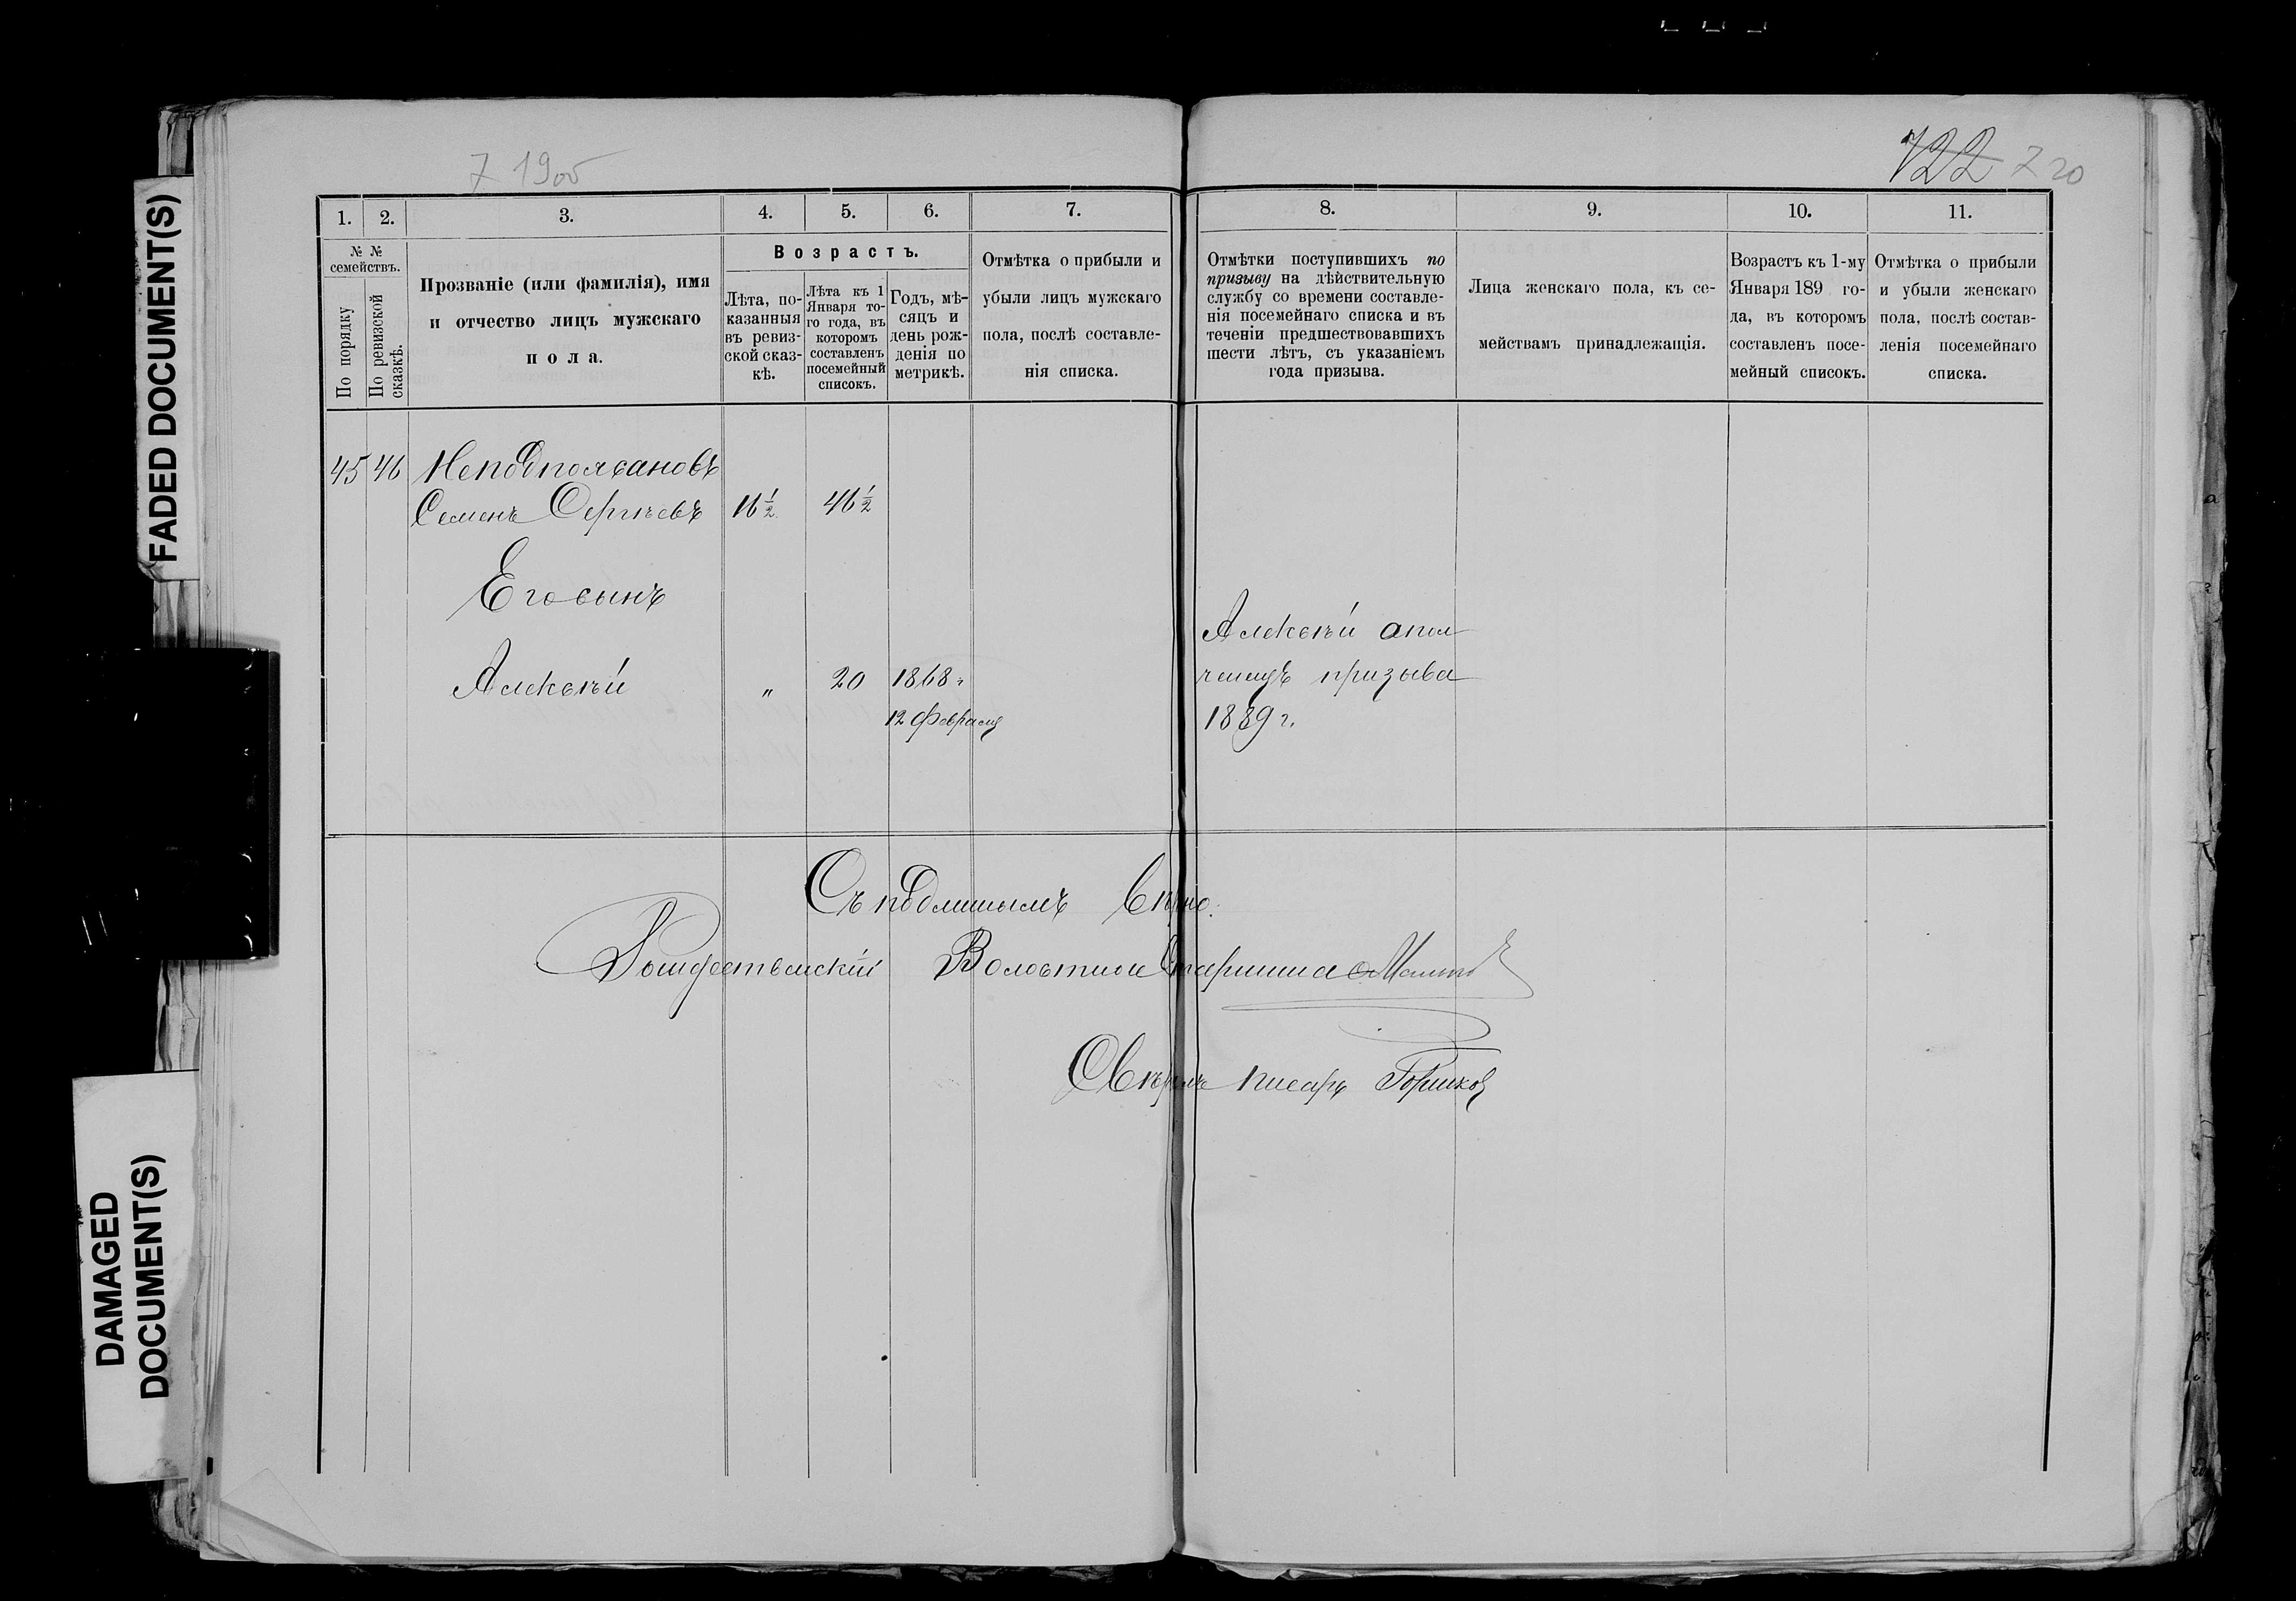 FADED DOCUMENT(S)
DAMAGED
DOCUMENT(S)
7 1900
722 720
1. 2. 3. 4. 5. 6. 7. 8. 9. 10. 11.
№ №
семействъ.
По порядку
По ревизской
сказкѣ.
Прозваніе (или фамилія), имя
и отчество лицъ мужскаго
пола.
Возрастъ.
Лѣта, по-
казанныя
въ ревиз-
ской сказ-
кѣ.
Лѣта къ 1
Января то-
го года, въ
которомъ
составленъ
посемейный
списокъ.
Годъ, мѣ-
сяцъ и
день рож-
денія по
метрикѣ.
Отмѣтка о прибыли и
убыли лицъ мужскаго
пола, послѣ составле-
нія списка.
Отмѣтки поступившихъ по
призыву на дѣйствительную
службу со времени составле-
нія посемейнаго списка и въ
теченіи предшествовавшихъ
шести лѣтъ, съ указаніемъ
года призыва.
Лица женскаго пола, къ се-
мействамъ принадлежащія.
Возрастъ къ 1-му
Января 189 го-
да, въ которомъ
составленъ посе-
мейный списокъ.
Отмѣтка о прибыли
и убыли женскаго
пола, послѣ состав-
ленія посемейнаго
списка.
45 46 Неподпоясановъ
Семенъ Сергѣевъ 16½ 46½
Его сынъ
Алексѣй „ 20 1868 г
12 Февраля
Алексѣй апол
ченецъ призыва
1889 г.
Съ подлиннымъ вѣрно:
Рождественскій Волостной Старшина
Свѣрялъ писарь Горшков